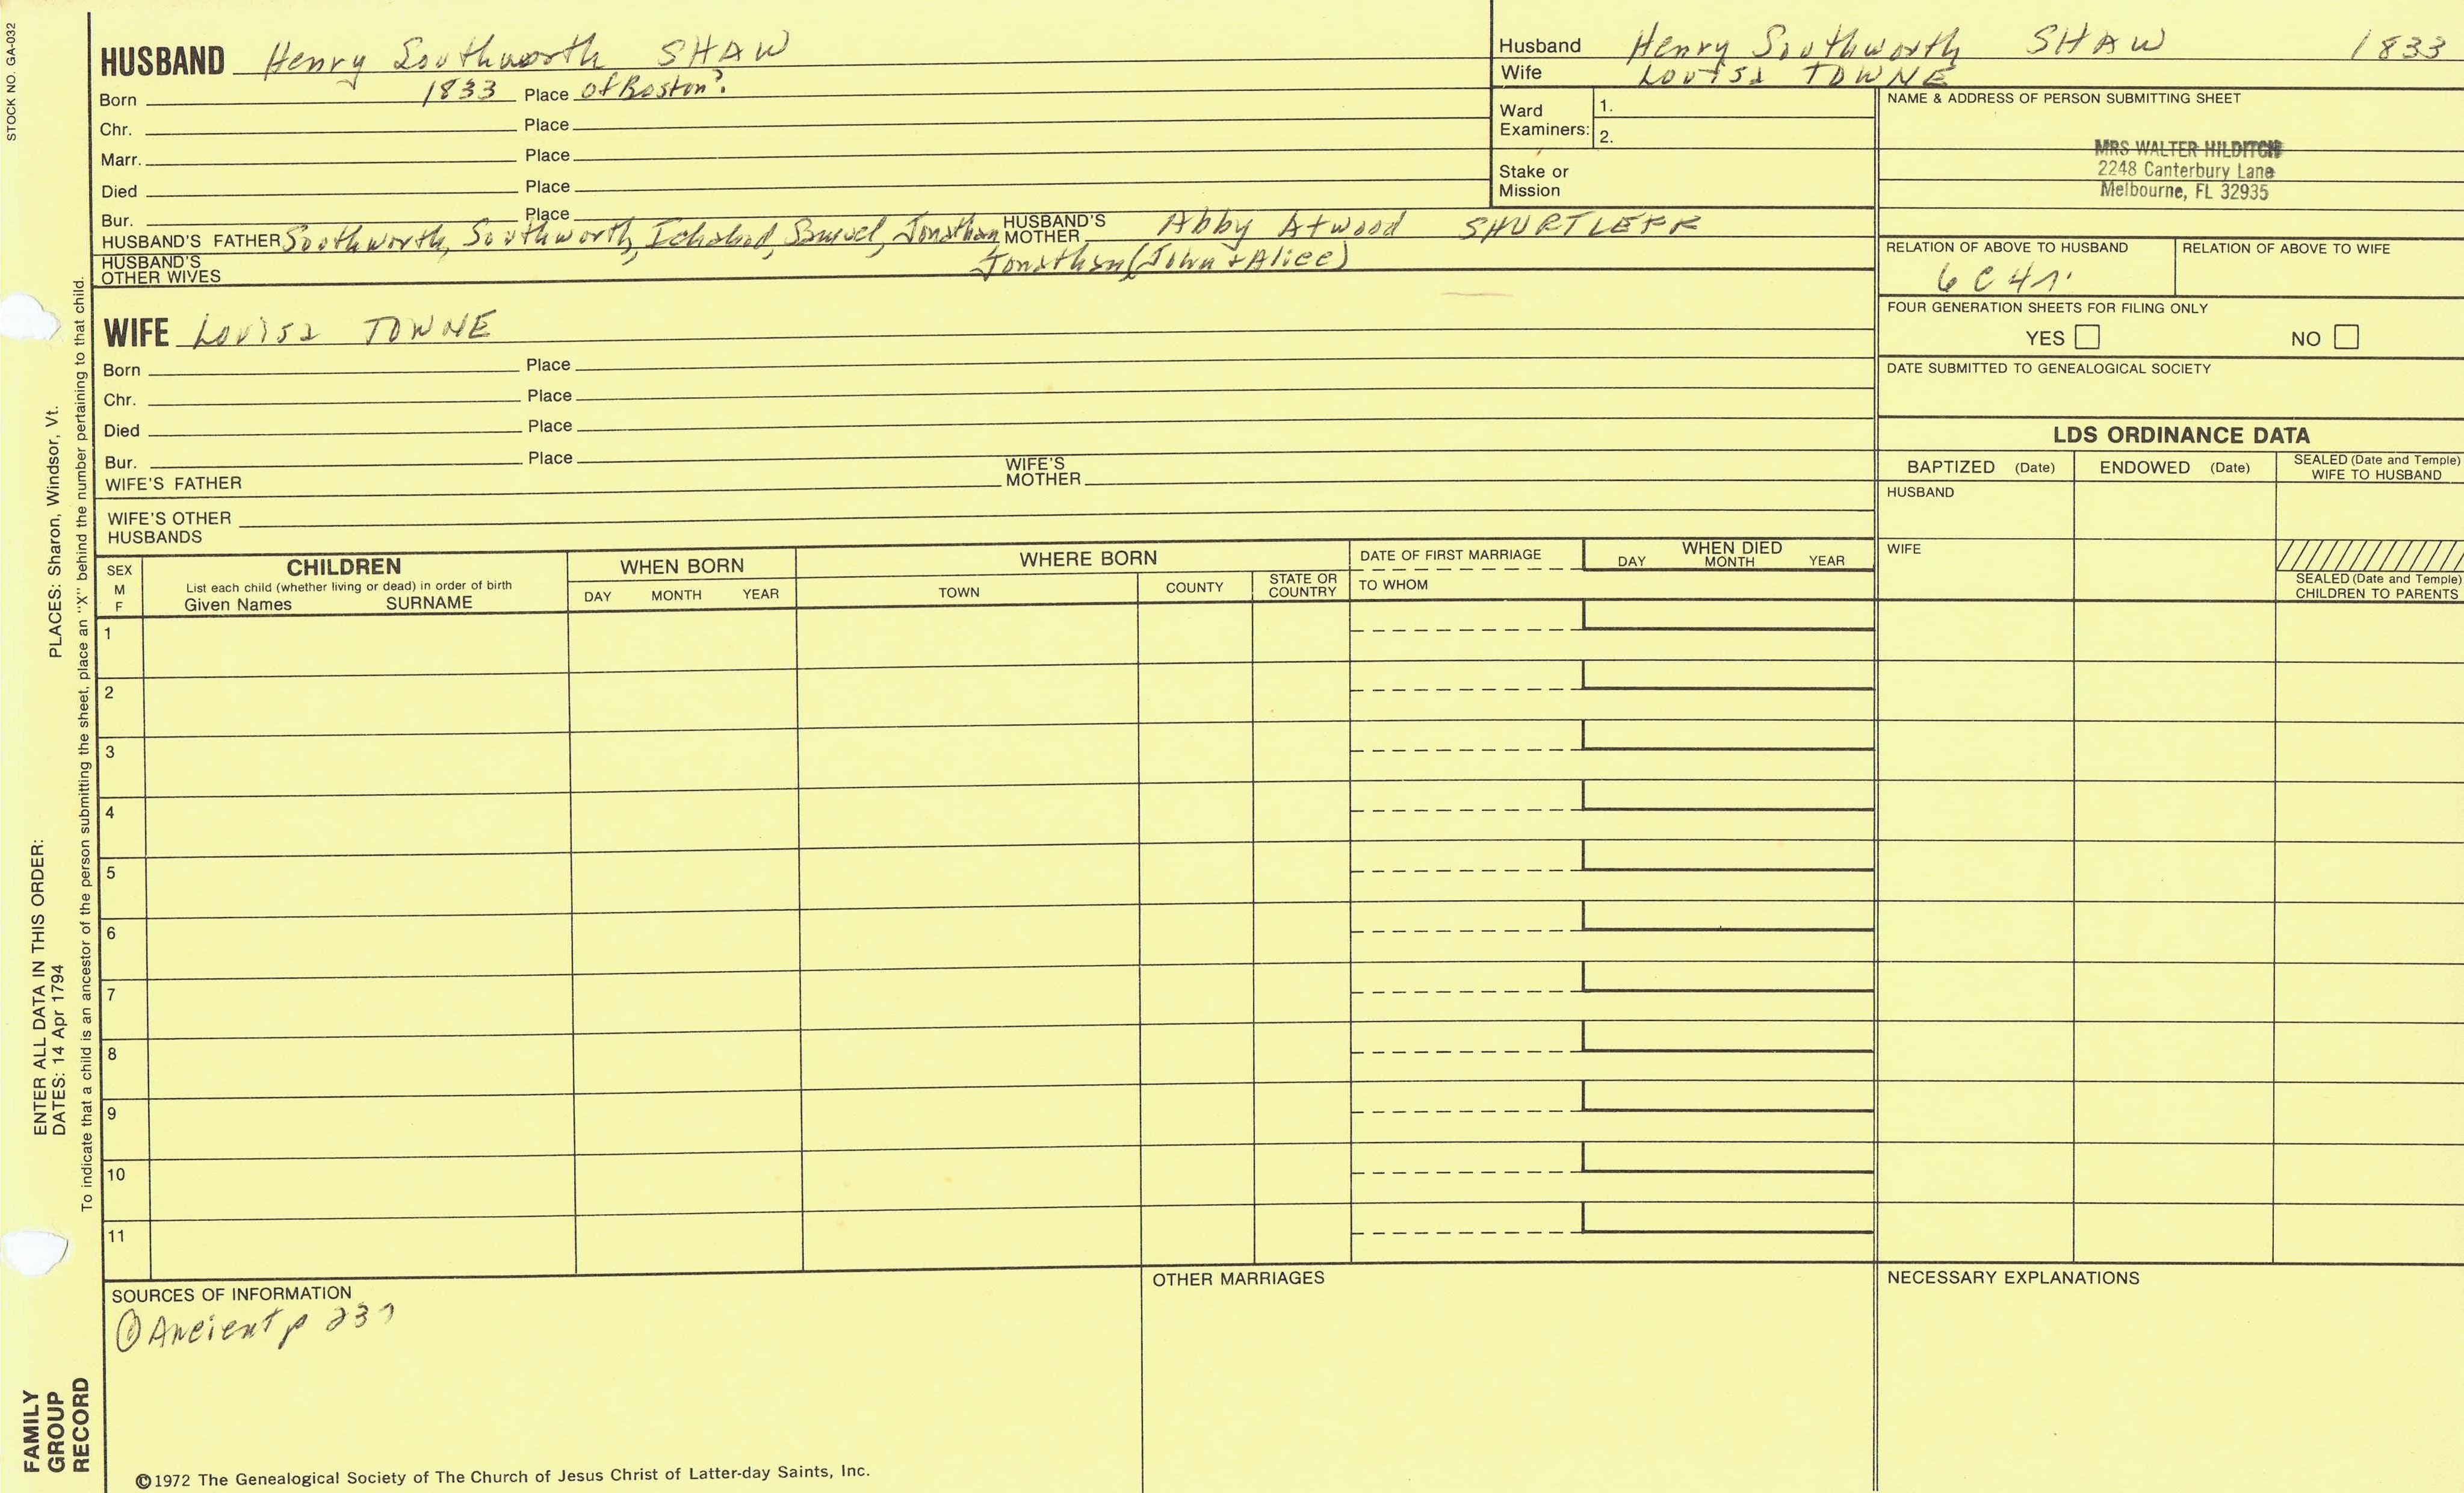 STOCK NO. GA-032
HUSBAND Henry Southworth SHAW
Born 1833 Place of Boston?
Chr. Place
Marr. Place
Died Place
Bur. Place
HUSBAND'S FATHER Southworth, Southworth, Ichabod, Samuel, Jonathan, HUSBAND'S MOTHER Abby Atwood SHURTLEFF
HUSBAND'S OTHER WIVES Jonathan (John + Alice)
Husband Henry Southworth SHAW 1833
Wife Louisa TOWNE
Ward Examiners: 1.
2.
Stake or Mission
NAME & ADDRESS OF PERSON SUBMITTING SHEET
MRS WALTER HILDITCH
2248 Canterbury Lane
Melbourne, FL 32935
RELATION OF ABOVE TO HUSBAND RELATION OF ABOVE TO WIFE
6 C 4 r.
FOUR GENERATION SHEETS FOR FILING ONLY
YES NO
DATE SUBMITTED TO GENEALOGICAL SOCIETY
WIFE Louisa TOWNE
Born Place
Chr. Place
Died Place
Bur. Place
WIFE'S FATHER WIFE'S MOTHER
WIFE'S OTHER HUSBANDS
LDS ORDINANCE DATA
BAPTIZED (Date) ENDOWED (Date) SEALED (Date and Temple) WIFE TO HUSBAND
HUSBAND
WIFE
SEALED (Date and Temple) CHILDREN TO PARENTS
SEX M F
CHILDREN
List each child (whether living or dead) in order of birth
Given Names SURNAME
WHEN BORN
DAY MONTH YEAR
WHERE BORN
TOWN COUNTY STATE OR COUNTRY
DATE OF FIRST MARRIAGE
TO WHOM
WHEN DIED
DAY MONTH YEAR
1
2
3
4
5
6
7
8
9
10
11
SOURCES OF INFORMATION
① Ancient p 237
OTHER MARRIAGES
NECESSARY EXPLANATIONS
©1972 The Genealogical Society of The Church of Jesus Christ of Latter-day Saints, Inc.
ENTER ALL DATA IN THIS ORDER:
DATES: 14 Apr 1794 PLACES: Sharon, Windsor, Vt.
To indicate that a child is an ancestor of the person submitting the sheet, place an "X" behind the number pertaining to that child.
FAMILY
GROUP
RECORD